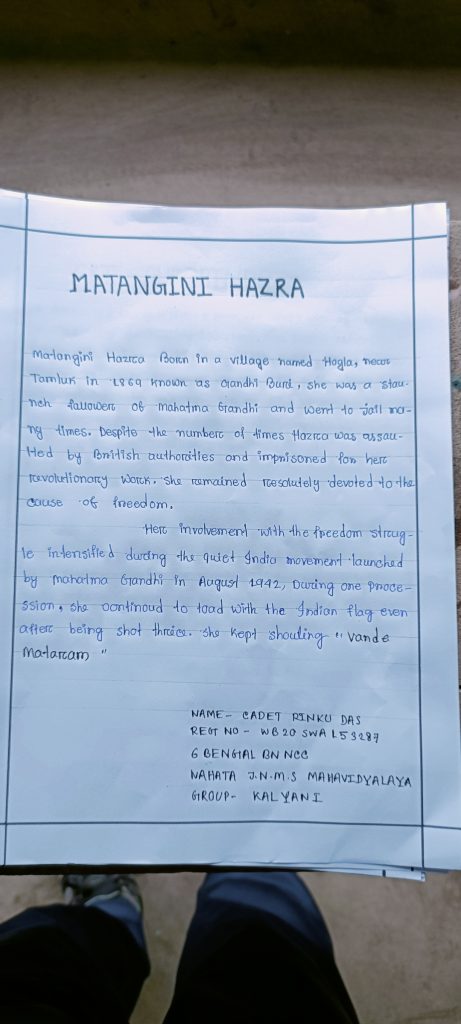 MATANGINI HAZRA
Matangini Hazra Born in a village named Hogla, near
Tamluk in 1869 known as Gandhi Buri, she was a stau-
nch fallower of mahatma Grandhi and went to jail ma-
ny times. Despite the number of times Hazra was assau-
lted by British authorities and imprisoned for her
revolutionary work, she remained resolutely devoted to the
cause of freedom.
Her involvement with the freedom strug-
le intensified during the quiet India movement launched
by mahatma Gandhi in August 1942, During one proce-
ssion, she continoud to toad with the Indian flag even
after being shot thrice. She kept shouting "vande
Mataram"
NAME- CADET RINKU DAS
REGT NO - WB20 SWA 153287
6 BENGAL BN NCC
NAHATA J.N.M.S MAHAVIDYALAYA
GROUP- KALYANI